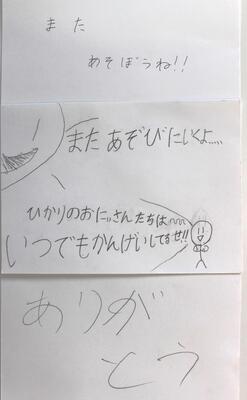 また
あそぼうね!!
またあそびにいくよ.....
ひかりのおにいさんたちは〜〜
いつでもかんげいしてるぜ!!
ありが
とう